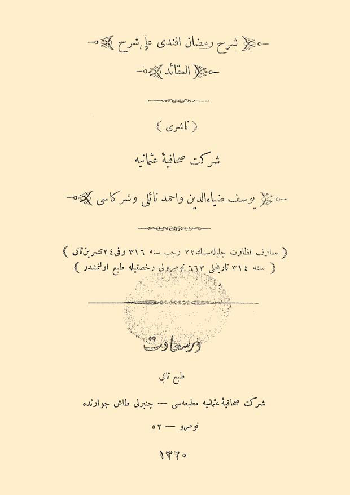 شرح رمضان افندی علی شرح
العقائد
( ناشری )
شرکت صحافیهٔ عثمانیه
یوسف ضیاءالدین واحمد نائلی وشرکاسی
( معارف نظارت جلیله‌سنك ٢٢ رجب سنه ٣١٦ وفی ٢٤ تشرین ثانی )
( سنه ٣١٤ تاریخلی ٦٦٣ نومرولی رخصتیله طبع اولنمشدر )
درسعادت
طبع ثانی
شرکت صحافیهٔ عثمانیه مطبعه‌سی — چنبرلی طاش جوارنده
نومرو — ٥٢
١٣٢٠